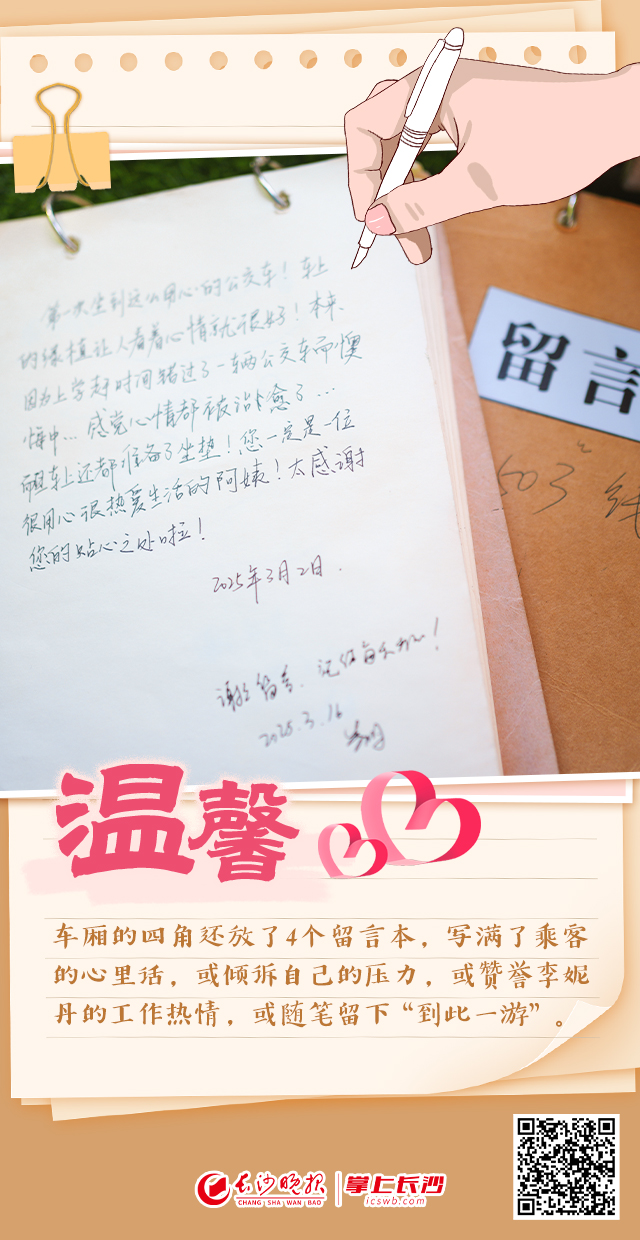 第一次坐到这么用心的公交车！车上
的绿植让人看着心情就很好！本来
因为上学赶时间错过了一辆公交车而懊
悔中…感觉心情都被治愈了…
而且车上还都准备了坐垫！您一定是一位
很用心很热爱生活的阿姨！太感谢
您的贴心之处啦！
2025年3月2日.
谢谢留言.
2025.3.16
留言
503
线
温馨
车厢的四角还放了4个留言本，写满了乘客
的心里话，或倾诉自己的压力，或赞誉李妮
丹的工作热情，或随笔留下“到此一游”。
长沙晚报
CHANG SHA WAN BAO
掌上长沙
icswb.com